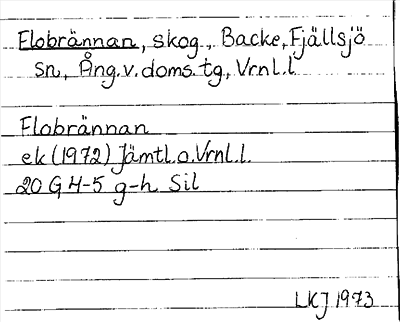 Flobrännan, skog., Backe, Fjällsjö
sn, Ång.v.doms.tg., Vrnl.l
Flobrännan
ek (1972) Jämtl.o.Vrnl.l.
20 G 4-5 g-h Sil
LKJ 1973